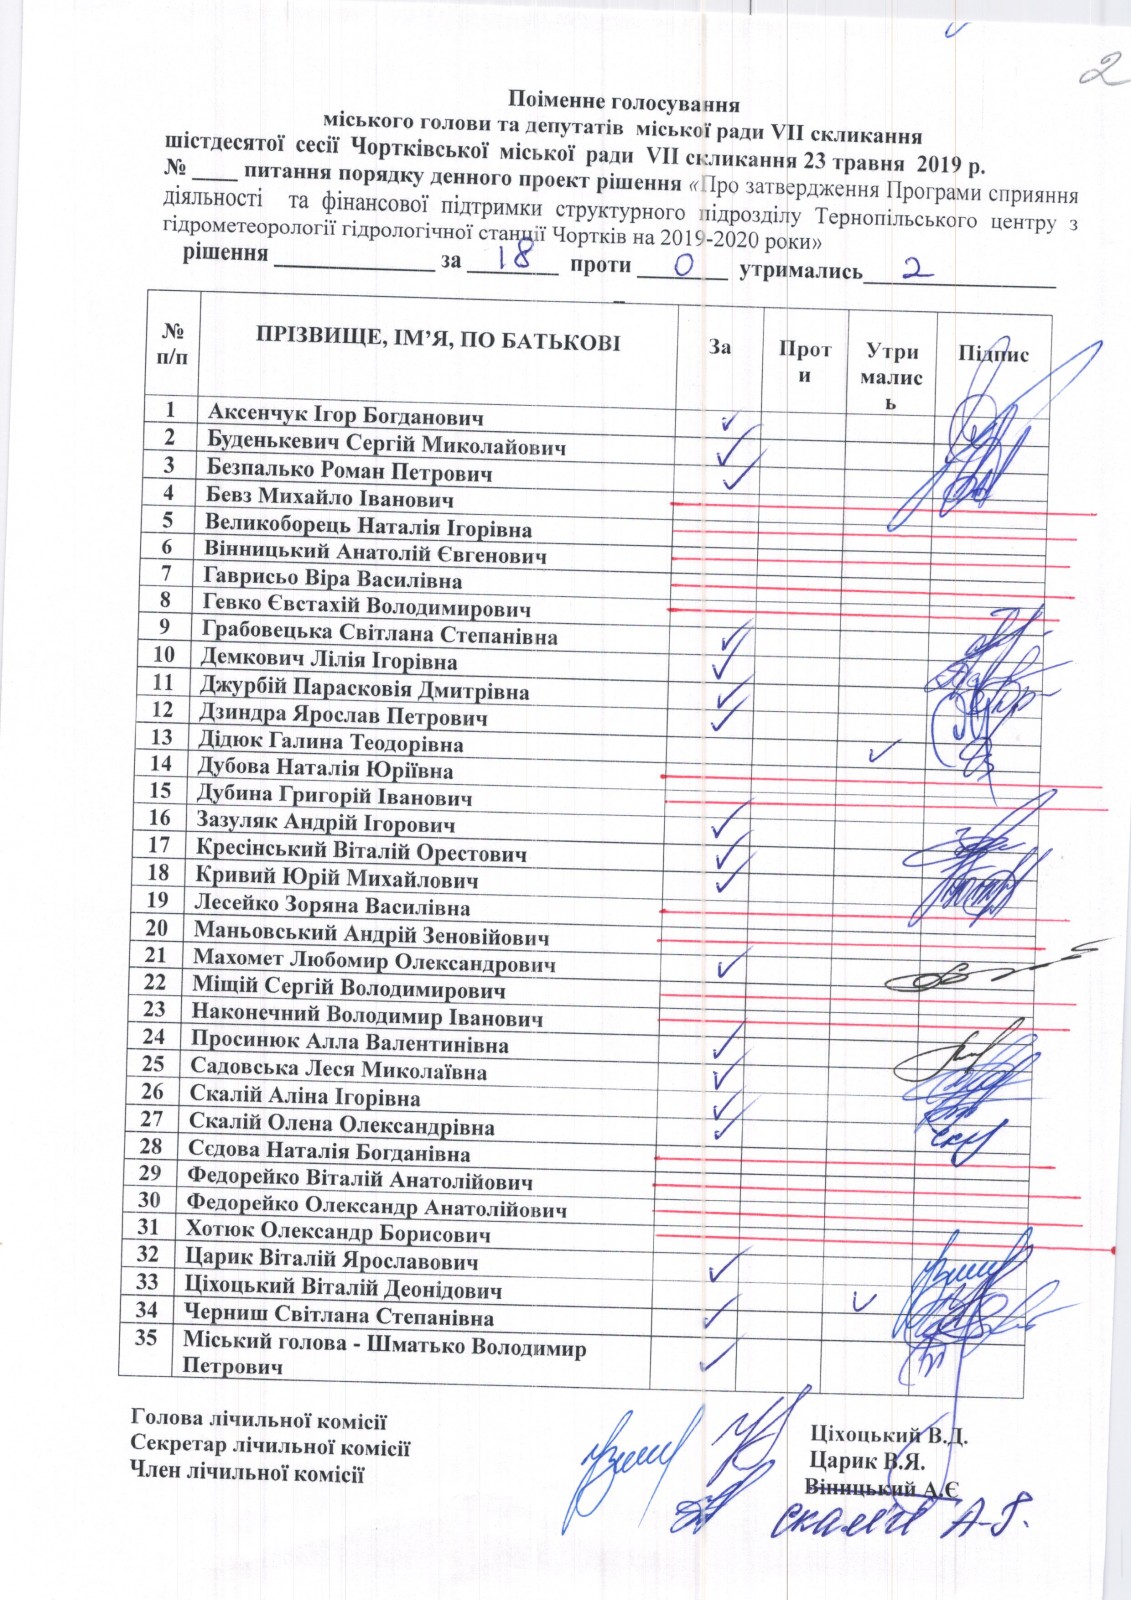 2
Поіменне голосування
міського голови та депутатів міської ради VII скликання
шістдесятої сесії Чортківської міської ради VII скликання 23 травня 2019 р.
№ ____ питання порядку денного проект рішення «Про затвердження Програми сприяння
діяльності та фінансової підтримки структурного підрозділу Тернопільського центру з
гідрометеорології гідрологічної станції Чортків на 2019-2020 роки»
рішення ______________ за 18 проти 0 утримались 2
№ п/п ПРІЗВИЩЕ, ІМ’Я, ПО БАТЬКОВІ За Прот и Утри малис ь Підпис
1 Аксенчук Ігор Богданович ✓
2 Буденькевич Сергій Миколайович ✓
3 Безпалько Роман Петрович ✓
4 Бевз Михайло Іванович
5 Великоборець Наталія Ігорівна
6 Вінницький Анатолій Євгенович
7 Гаврисьо Віра Василівна
8 Гевко Євстахій Володимирович
9 Грабовецька Світлана Степанівна ✓
10 Демкович Лілія Ігорівна ✓
11 Джурбій Парасковія Дмитрівна ✓
12 Дзиндра Ярослав Петрович ✓
13 Дідюк Галина Теодорівна ✓
14 Дубова Наталія Юріївна
15 Дубина Григорій Іванович
16 Зазуляк Андрій Ігорович ✓
17 Кресінський Віталій Орестович ✓
18 Кривий Юрій Михайлович ✓
19 Лесейко Зоряна Василівна
20 Маньовський Андрій Зеновійович
21 Махомет Любомир Олександрович ✓
22 Міщій Сергій Володимирович
23 Наконечний Володимир Іванович
24 Просинюк Алла Валентинівна ✓
25 Садовська Леся Миколаївна ✓
26 Скалій Аліна Ігорівна ✓
27 Скалій Олена Олександрівна ✓
28 Сєдова Наталія Богданівна
29 Федорейко Віталій Анатолійович
30 Федорейко Олександр Анатолійович
31 Хотюк Олександр Борисович
32 Царик Віталій Ярославович ✓
33 Ціхоцький Віталій Деонідович ✓
34 Черниш Світлана Степанівна ✓
35 Міський голова - Шматько Володимир ✓
Петрович
Голова лічильної комісії Ціхоцький В.Д.
Секретар лічильної комісії Царик В.Я.
Член лічильної комісії Віницький А.Є
Скалій А.І.